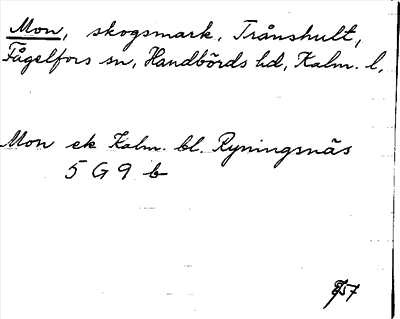 Mon, skogsmark, Trånshult,
Fågelfors sn, Handbörds hd, Kalm. l.
Mon ek Kalm. bl. Ryningsnäs
5 G 9 b